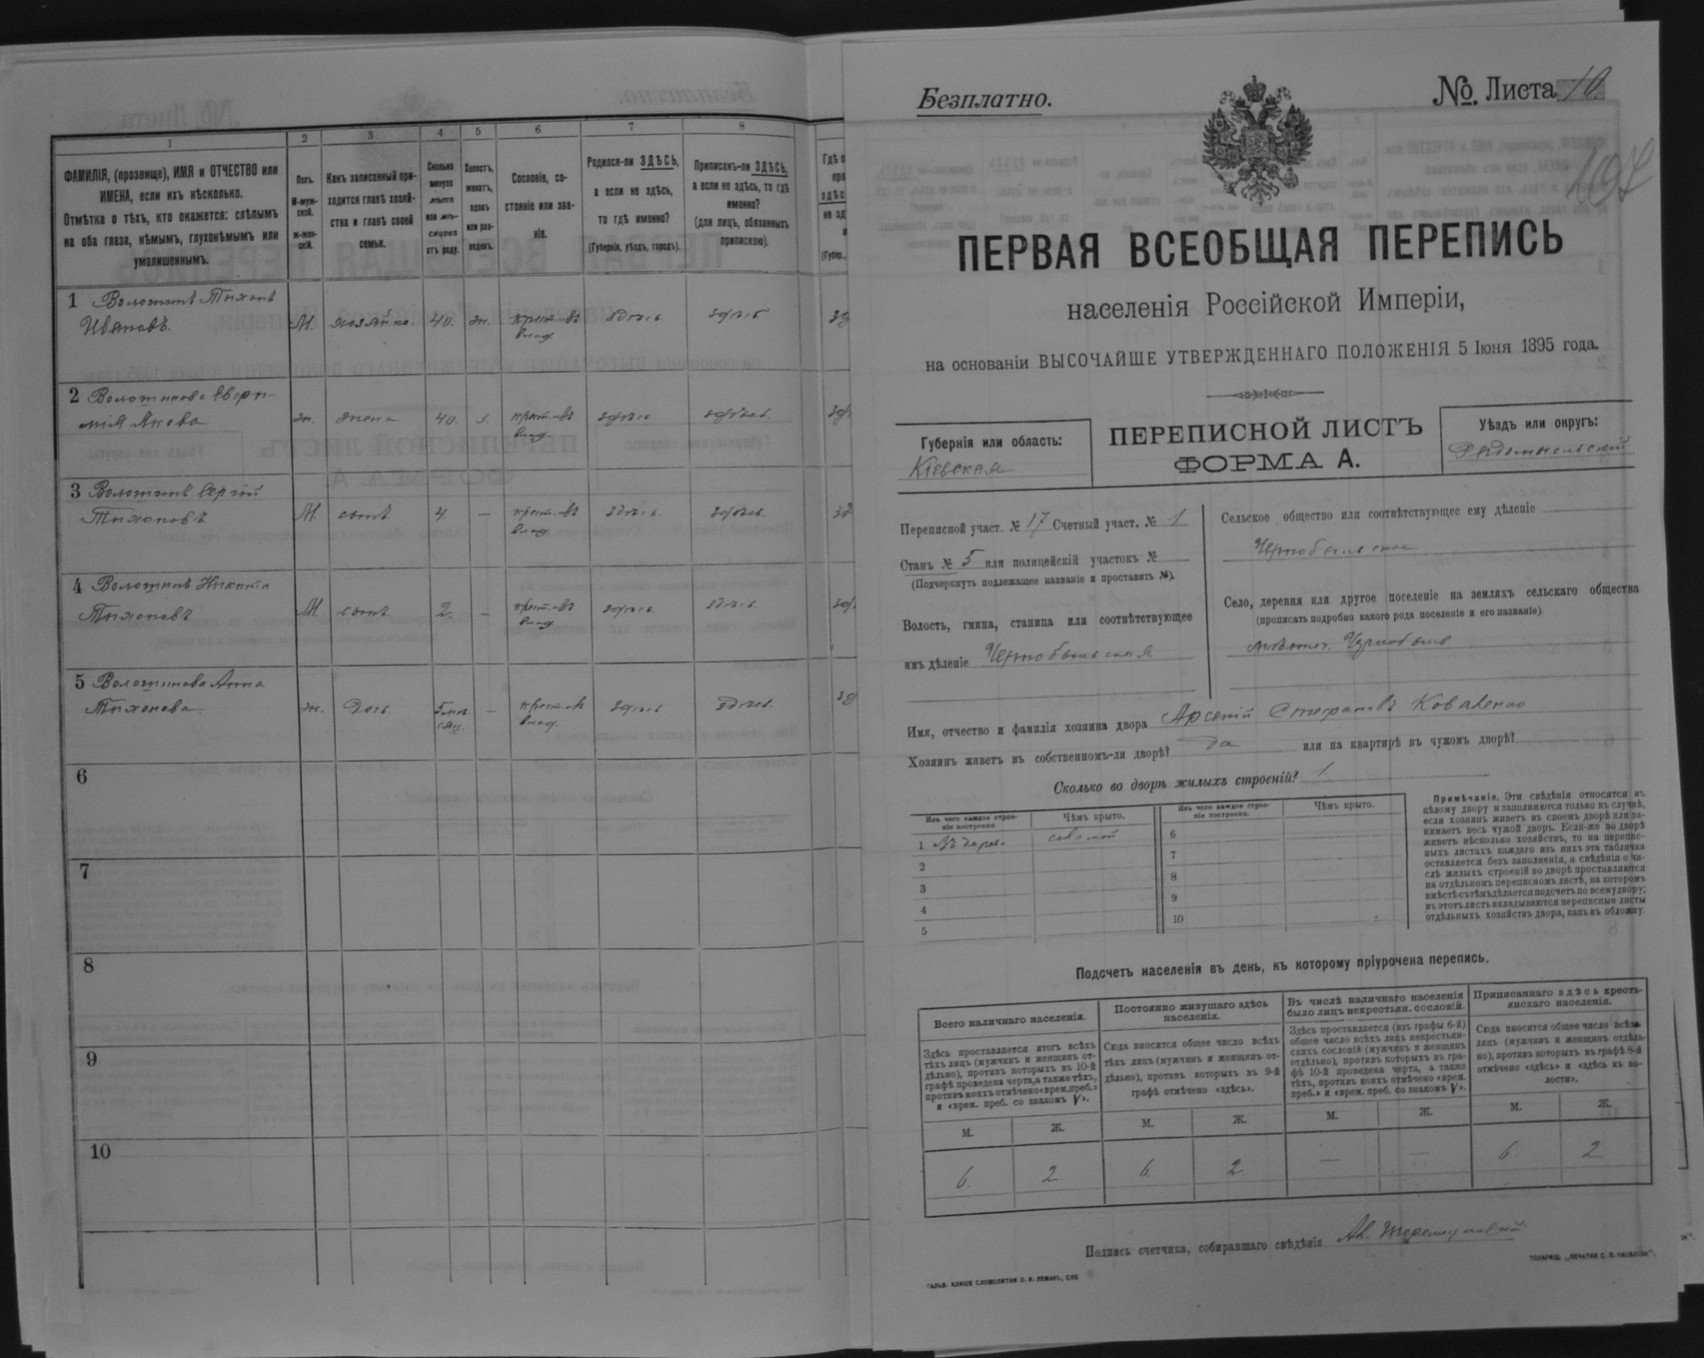 1 2 3 4 5 6 7 8
ФАМИЛІЯ, (прозвище), ИМЯ и ОТЧЕСТВО или
ИМЕНА, если ихъ нѣсколько.
Отмѣтка о тѣхъ, кто окажется: слѣпымъ
на оба глаза, нѣмымъ, глухонѣмымъ или
умалишеннымъ.
Полъ.
М-муж-
ской.
Ж-жен-
скій.
Какъ записанный при-
ходится главѣ хозяй-
ства и главѣ своей
семьи.
Сколько
минуло
лѣтъ
или мѣ-
сяцевъ
отъ роду.
Холостъ,
женатъ,
вдовъ
или раз-
веденъ.
Сословіе, со-
стояніе или зва-
ніе.
Родился-ли ЗДѢСЬ,
а если не здѣсь,
то гдѣ именно?
(Губернія, уѣздъ, городъ).
Приписанъ-ли ЗДѢСЬ,
а если не здѣсь, то гдѣ
именно?
(для лицъ, обязанныхъ
припискою).
1 Воложинъ Тихонъ
Ивановъ. М. хозяинъ. 40. ж. здѣсь здѣсь
2 ж. жена 40. здѣсь здѣсь
3 Воложинъ Сергій
Тихоновъ М. сынъ 4. — здѣсь здѣсь
4 Воложинъ Никита
Тихоновъ М сынъ 2. — здѣсь здѣсь
5 Воложинова Анна
Тихонова ж. дочь — здѣсь здѣсь
6
7
8
9
10
Безплатно.
№ Листа 10
ПЕРВАЯ ВСЕОБЩАЯ ПЕРЕПИСЬ
населенія Россійской Имперіи,
на основаніи ВЫСОЧАЙШЕ УТВЕРЖДЕННАГО ПОЛОЖЕНІЯ 5 Іюня 1895 года.
Губернія или область:
Кіевская
ПЕРЕПИСНОЙ ЛИСТЪ
ФОРМА А.
Уѣздъ или округъ:
Радомысльскій
Переписной участ. № 17 Счетный участ. № 1
Станъ № 5 или полицейскій участокъ №
(Подчеркнуть подлежащее названіе и проставить №).
Волость, гмина, станица или соотвѣтствующее
имъ дѣленіе Чернобыльская
Сельское общество или соотвѣтствующее ему дѣленіе
Чернобыльское
Село, деревня или другое поселеніе на земляхъ сельскаго общества
(прописать подробно какого рода поселеніе и его названіе)
мѣстеч. Чернобыль
Имя, отчество и фамилія хозяина двора Арсеній Стефановъ Коваленко
Хозяинъ живетъ въ собственномъ-ли дворѣ? да или на квартирѣ въ чужомъ дворѣ?
Сколько во дворѣ жилыхъ строеній? 1
Изъ чего каждое строе-
ніе построено.
Чѣмъ крыто.
Изъ чего каждое строе-
ніе построено.
Чѣмъ крыто.
1 соломой
2
3
4
5
6
7
8
9
10
Примѣчаніе. Эти свѣдѣнія относятся къ
цѣлому двору и заполняются только въ случаѣ,
если хозяинъ живетъ въ своемъ дворѣ или за-
нимаетъ весь чужой дворъ. Если-же во дворѣ
живетъ нѣсколько хозяйствъ, то на перепис-
ныхъ листахъ каждаго изъ нихъ эта табличка
оставляется безъ заполненія, а свѣдѣнія о чи-
слѣ жилыхъ строеній во дворѣ проставляются
на отдѣльномъ переписномъ листѣ, на которомъ
вмѣстѣ съ тѣмъ дѣлается подсчетъ по всему двору;
въ этотъ листъ вкладываются переписные листы
отдѣльныхъ хозяйствъ двора, какъ въ обложку.
Подсчетъ населенія въ день, къ которому пріурочена перепись.
Всего наличнаго населенія.
Здѣсь проставляется итогъ всѣхъ
тѣхъ лицъ (мужчинъ и женщинъ от-
дѣльно), противъ которыхъ въ 10-й
графѣ проведена черта, а также тѣхъ,
противъ коихъ отмѣчено «врем. преб.»
и «врем. преб. со знакомъ V».
Постоянно живущаго здѣсь
населенія.
Сюда вносится общее число всѣхъ
тѣхъ лицъ (мужчинъ и женщинъ от-
дѣльно), противъ которыхъ въ 9-й
графѣ отмѣчено «здѣсь».
Въ числѣ наличнаго населенія
было лицъ некрестьян. сословій.
Здѣсь проставляется (изъ графы 6-й)
общее число всѣхъ лицъ некрестьян-
скихъ сословій (мужчинъ и женщинъ
отдѣльно), противъ которыхъ въ гра-
фѣ 10-й проведена черта, а также
тѣхъ, противъ коихъ отмѣчено «врем.
преб.» и «врем. преб. со знакомъ V».
Приписаннаго здѣсь кресть-
янскаго населенія.
Сюда вносится общее число всѣхъ
лицъ (мужчинъ и женщинъ отдѣль-
но), противъ которыхъ въ графѣ 8-й
отмѣчено «здѣсь» и «здѣсь въ во-
лости».
М. Ж. М. Ж. М. Ж. М. Ж.
6 2 6 2 — — 6 2
Подпись счетчика, собиравшаго свѣдѣнія